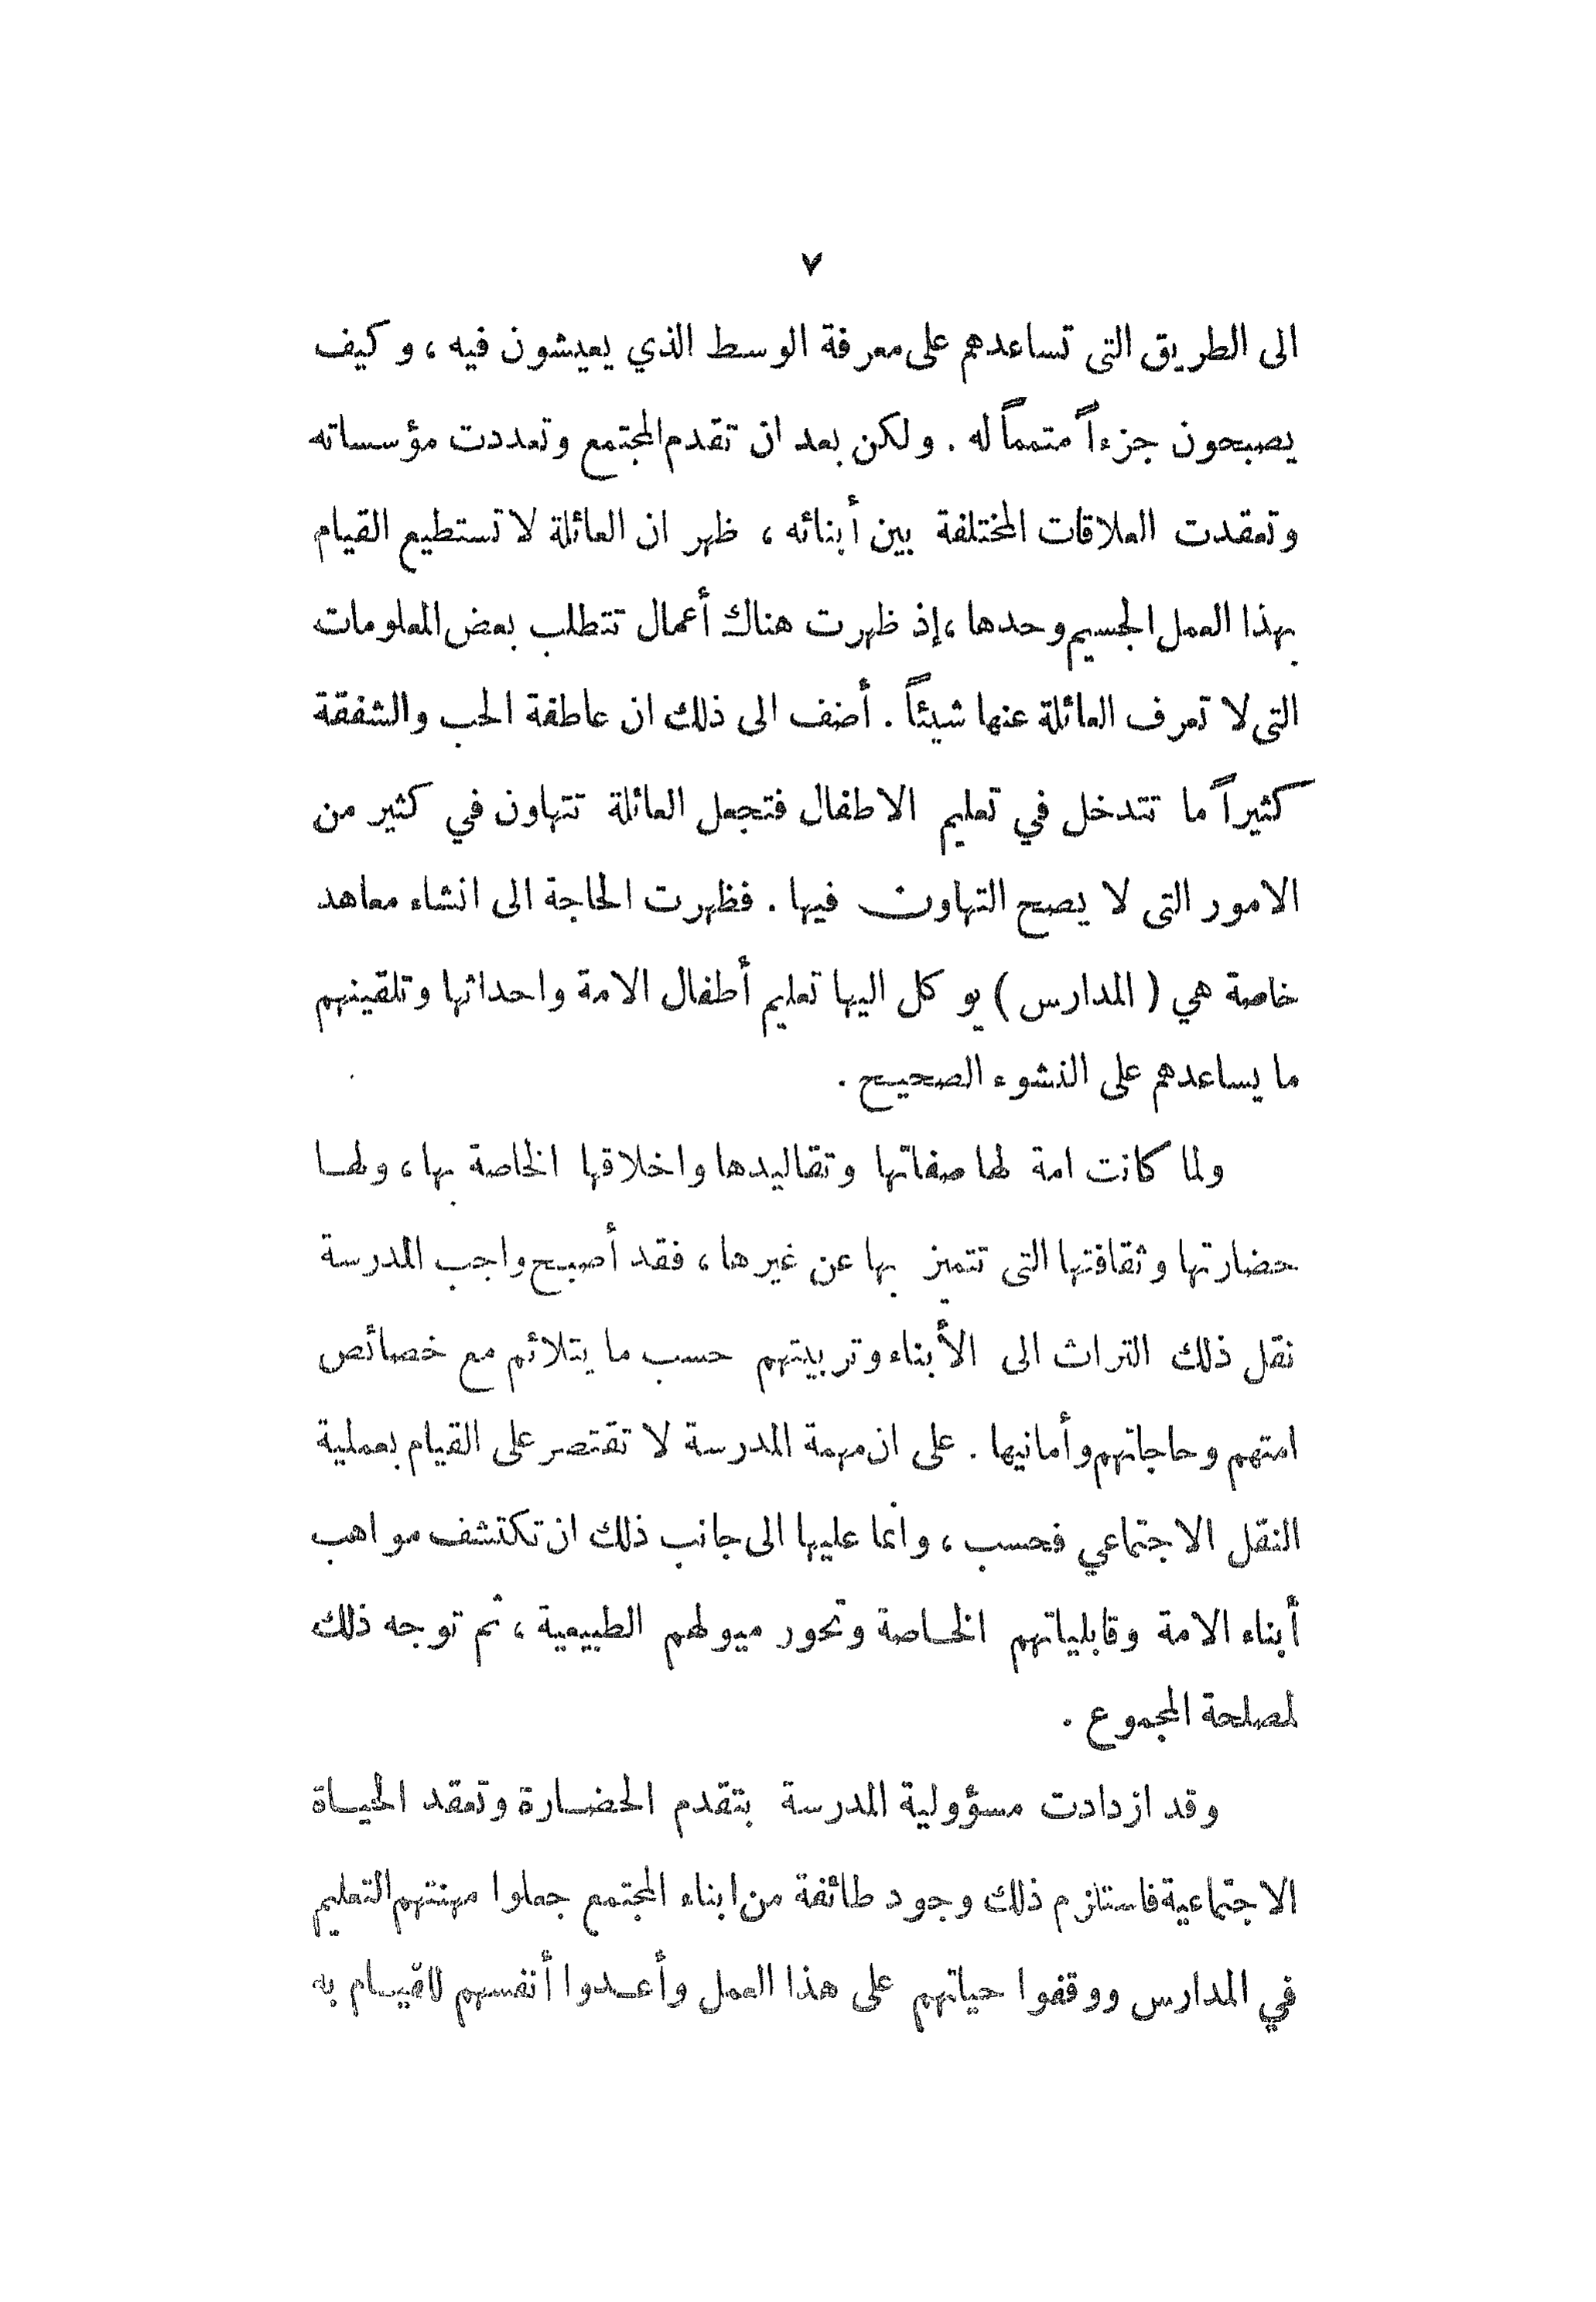 ٧
الى الطريق التى تساعدهم على معرفة الوسط الذي يعيشون فيه ، وكيف
يصبحون جزءاً متمماً له . ولكن بعد ان تقدم المجتمع وتعددت مؤسساته
وتعقدت العلاقات المختلفة بين أبنائه ، ظهر ان العائلة لا تستطيع القيام
بهذا العمل الجسيم وحدها ، إذ ظهرت هناك أعمال تتطلب بعض المعلومات
التى لا تعرف العائلة عنها شيئاً . أضف الى ذلك ان عاطفة الحب والشفقة
كثيراً ما تتدخل في تعليم الاطفال فتجعل العائلة تتهاون في كثير من
الامور التى لا يصح التهاون فيها . فظهرت الحاجة الى انشاء معاهد
خاصة هي ( المدارس ) يوكل اليها تعليم أطفال الامة واحداثها وتلقينهم
ما يساعدهم على النشوء الصحيح .
ولما كانت امة لها صفاتها وتقاليدها واخلاقها الخاصة بها ، ولها
حضارتها وثقافتها التى تتميز بها عن غيرها ، فقد أصبح واجب المدرسة
نقل ذلك التراث الى الأبناء وتربيتهم حسب ما يتلائم مع خصائص
امتهم وحاجاتهم وأمانيها . على ان مهمة المدرسة لا تقتصر على القيام بعملية
النقل الاجتماعي فحسب ، وانما عليها الى جانب ذلك ان تكتشف مواهب
أبناء الامة وقابلياتهم الخاصة وتحور ميولهم الطبيعية ، ثم توجه ذلك
لمصلحة المجموع .
وقد ازدادت مسؤولية المدرسة بتقدم الحضارة وتعقد الحياة
الاجتماعية فاستلزم ذلك وجود طائفة من ابناء المجتمع جعلوا مهنتهم التعليم
في المدارس ووقفوا حياتهم على هذا العمل وأعدوا أنفسهم للقيام به